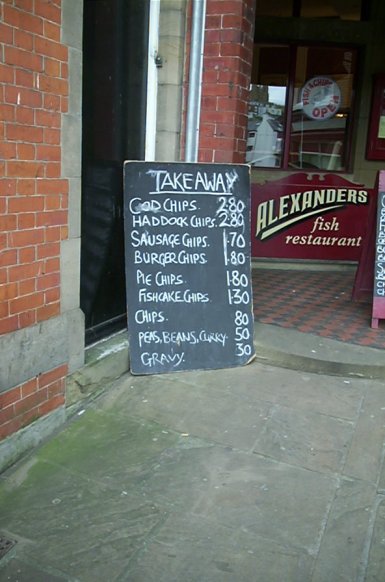 TAKEAWAY
COD CHIPS. 2.80
HADDOCK CHIPS. 2.80
SAUSAGE CHIPS. 1.70
BURGER CHIPS. 1.80
PIE CHIPS. 1.80
FISHCAKE CHIPS. 1.30
CHIPS. 80
PEAS, BEANS, CURRY. 50
GRAVY. 30
FISH & CHIPS
OPEN
ALEXANDERS
fish
restaurant